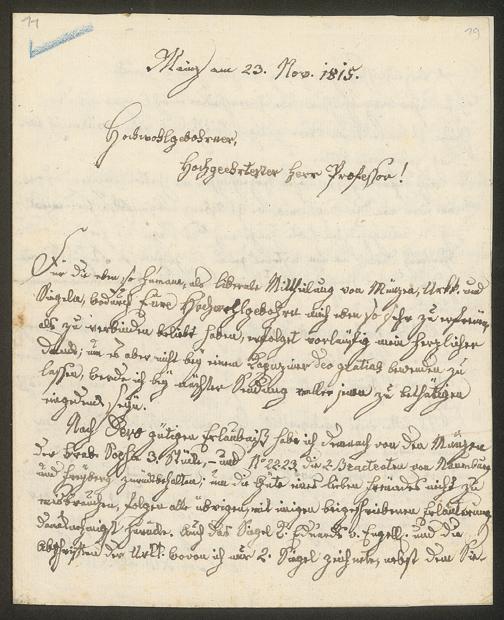 11
19
Mainz am 23. Nov. 1815.
Hochwohlgebohrner,
Hochgeehrtester Herr Professor!
Für die eben so humane, als liberale Mittheilung von Münzen, Urkk. und
Siegeln, wodurch Eure Hochwohlgebohren mich eben so sehr zu erfreuen,
als zu verbinden beliebt haben, erfolget vorläufig mein herzlicher
Dank; um es aber nicht bey einem deo gratias bewenden zu
lassen, werde ich bey nächster Sendung zu bethätigen
eingedenk seyn.
Nach Dero gütigen Erlaubniß habe ich demnach von den Münzen
der Sophia 3. Stücke, und N° 2223 die 2 Bracteaten von Naumburg
und Freyberg zurückbehalten; um die Güte eines lieben Freundes nicht zu
misbrauchen, folgen alle übrigen, mit beygeschriebenen Erläuterung
hierbey. Auch das Siegel und die
Abschriften der Urkk. wovon ich nur 2. Siegel zeichnete, nebst dem